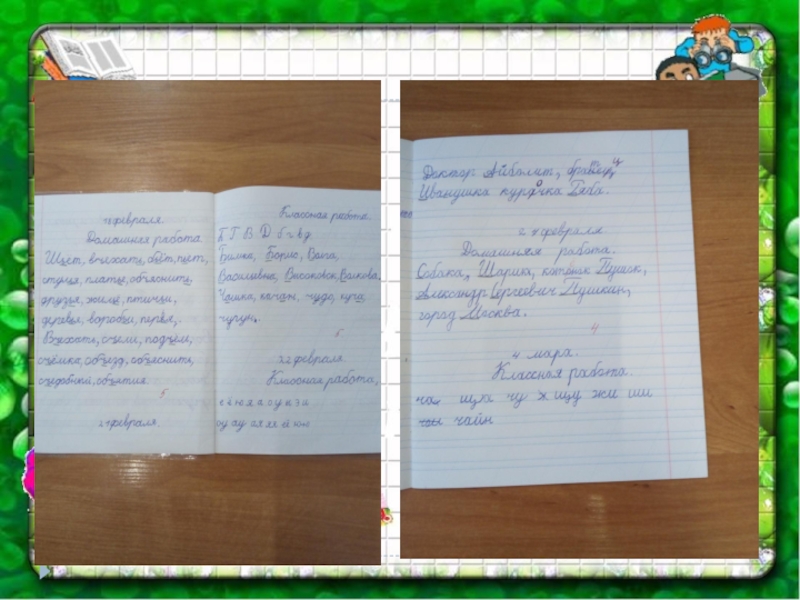 февраля.
Домашняя работа
друзья, жильё, птичьи,
деревья, воробьи, перья,
Въехать, съели, подъём,
съёмка, объезд, объяснить,
съедобный, объятия.
5
февраля.
Классная работа.
Б Г В Д б г в д
Бимка, Борис, Ваня,
Васильевна, Высоковск, Волкова.
Чашка, чудо, куча,
чугун.
5
февраля
Классная работа,
е ё ю я а о у и э и
оу ау
Доктор Айболит,
Иванушка курочка Ряба.
февраля
Домашняя работа.
Собака, Шарик, котёнок Пушок,
Александр Сергеевич Пушкин,
город Москва.
4
4 мара.
Классная работа.
ча щха чу х щу жи ши
чайн